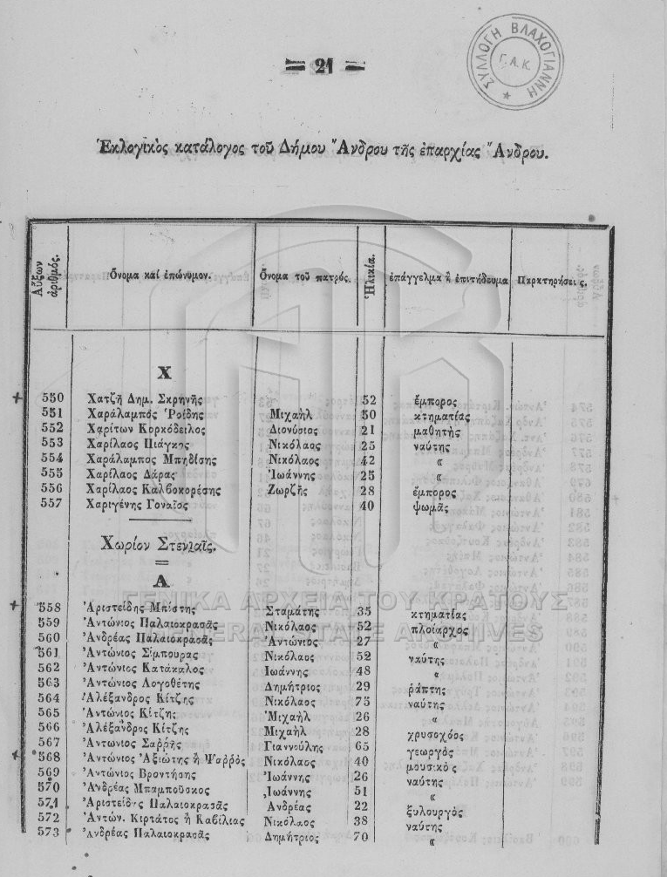 = 21 =
ΣΥΛΛΟΓΗ ΒΛΑΧΟΓΙΑΝΝΗ
Γ.Α.Κ.
Ἐκλογικὸς κατάλογος τοῦ Δήμου Ἄνδρου τῆς ἐπαρχίας Ἄνδρου.
Αὔξων ἀριθμός. Ὄνομα καὶ ἐπώνυμον. Ὄνομα τοῦ πατρός. Ἡλικία. ἐπάγγελμα ἢ ἐπιτήδευμα Παρατηρήσεις,
Χ
550 Χατζῆ Δημ. Σκρηνῆς 52 ἔμπορος
551 Χαράλαμπος Ῥοΐδης Μιχαὴλ 50 κτηματίας
552 Χαρίτων Κορκόδειλος Διονύσιος 21 μαθητὴς
553 Χαρίλαος Πιάγκος Νικόλαος 25 ναύτης
554 Χαράλαμπος Μπηδίσης Νικόλαος 42 «
555 Χαρίλαος Δάρας Ἰωάννης 25 «
556 Χαρίλαος Καλβοκορέσης Ζωρζῆς 28 ἔμπορος
557 Χαριγένης Γοναῖος 40 ψωμᾶς
Χωρίον Στενιαῖς.
Α
558 Ἀριστείδης Μπίστης Σταμάτης 35 κτηματίας
559 Ἀντώνιος Παλαιοκρασᾶς Νικόλαος 52 πλοίαρχος
560 Ἀνδρέας Παλαιοκρασᾶς Ἀντώνιος 27 «
561 Ἀντώνιος Σίμπουρας Νικόλαος 52 ναύτης
562 Ἀντώνιος Κατάκαλος Ἰωάννης 48 «
563 Ἀντώνιος Λογοθέτης Δημήτριος 29 ῥάπτης
564 Ἀλέξανδρος Κίτζης Νικόλαος 75 ναύτης
565 Ἀντώνιος Κίτζης Μιχαὴλ 26 «
566 Ἀλέξανδρος Κίτζης Μιχαὴλ 28 χρυσοχόος
567 Ἀντώνιος Σαρρῆς Γιαννούλης 65 γεωργὸς
568 Ἀντώνιος Ἀξιώτης ἢ Ψαρρὸς Νικόλαος 40 μουσικὸς
569 Ἀντώνιος Βροντήσης Ἰωάννης 26 ναύτης
570 Ἀνδρέας Μπαμποῦσκος Ἰωάννης 51 «
571 Ἀριστείδης Παλαιοκρασᾶς Ἀνδρέας 22 ξυλουργὸς
572 Ἀντών. Κιρτάτος ἢ Καβίλιας Νικόλαος 38 ναύτης
573 Ἀνδρέας Παλαιοκρασᾶς Δημήτριος 70 «
ΓΕΝΙΚΑ ΑΡΧΕΙΑ ΤΟΥ ΚΡΑΤΟΥΣ
GENERAL STATE ARCHIVES